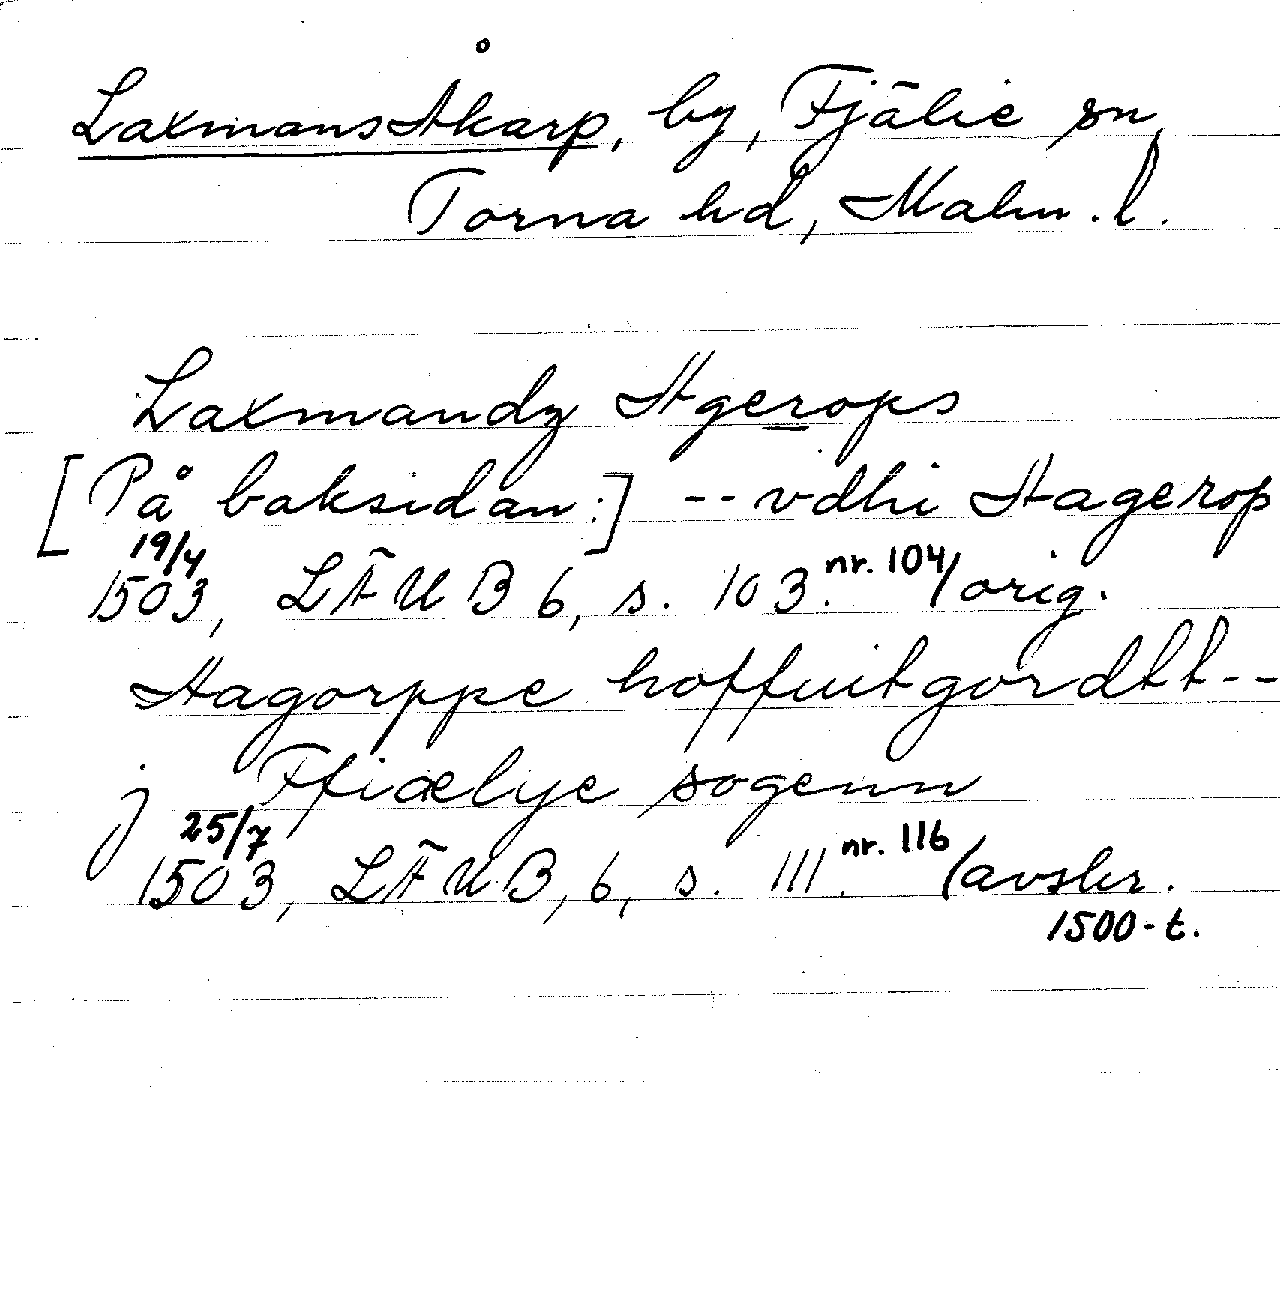 Laxmans Åkarp, by, Fjälie sn,
Torna hd, Malm. l.
Laxmandz Agerops
[På baksidan:] -- vdhi Aagerop
19/4 1503, LÄUB 6, s. 103. nr. 104/orig.
Aagorppe hoffuitgordtt --
j Ffiælye sogenn
25/7 1503, LÄUB, 6, s. 111. nr. 116/avskr.
1500-t.